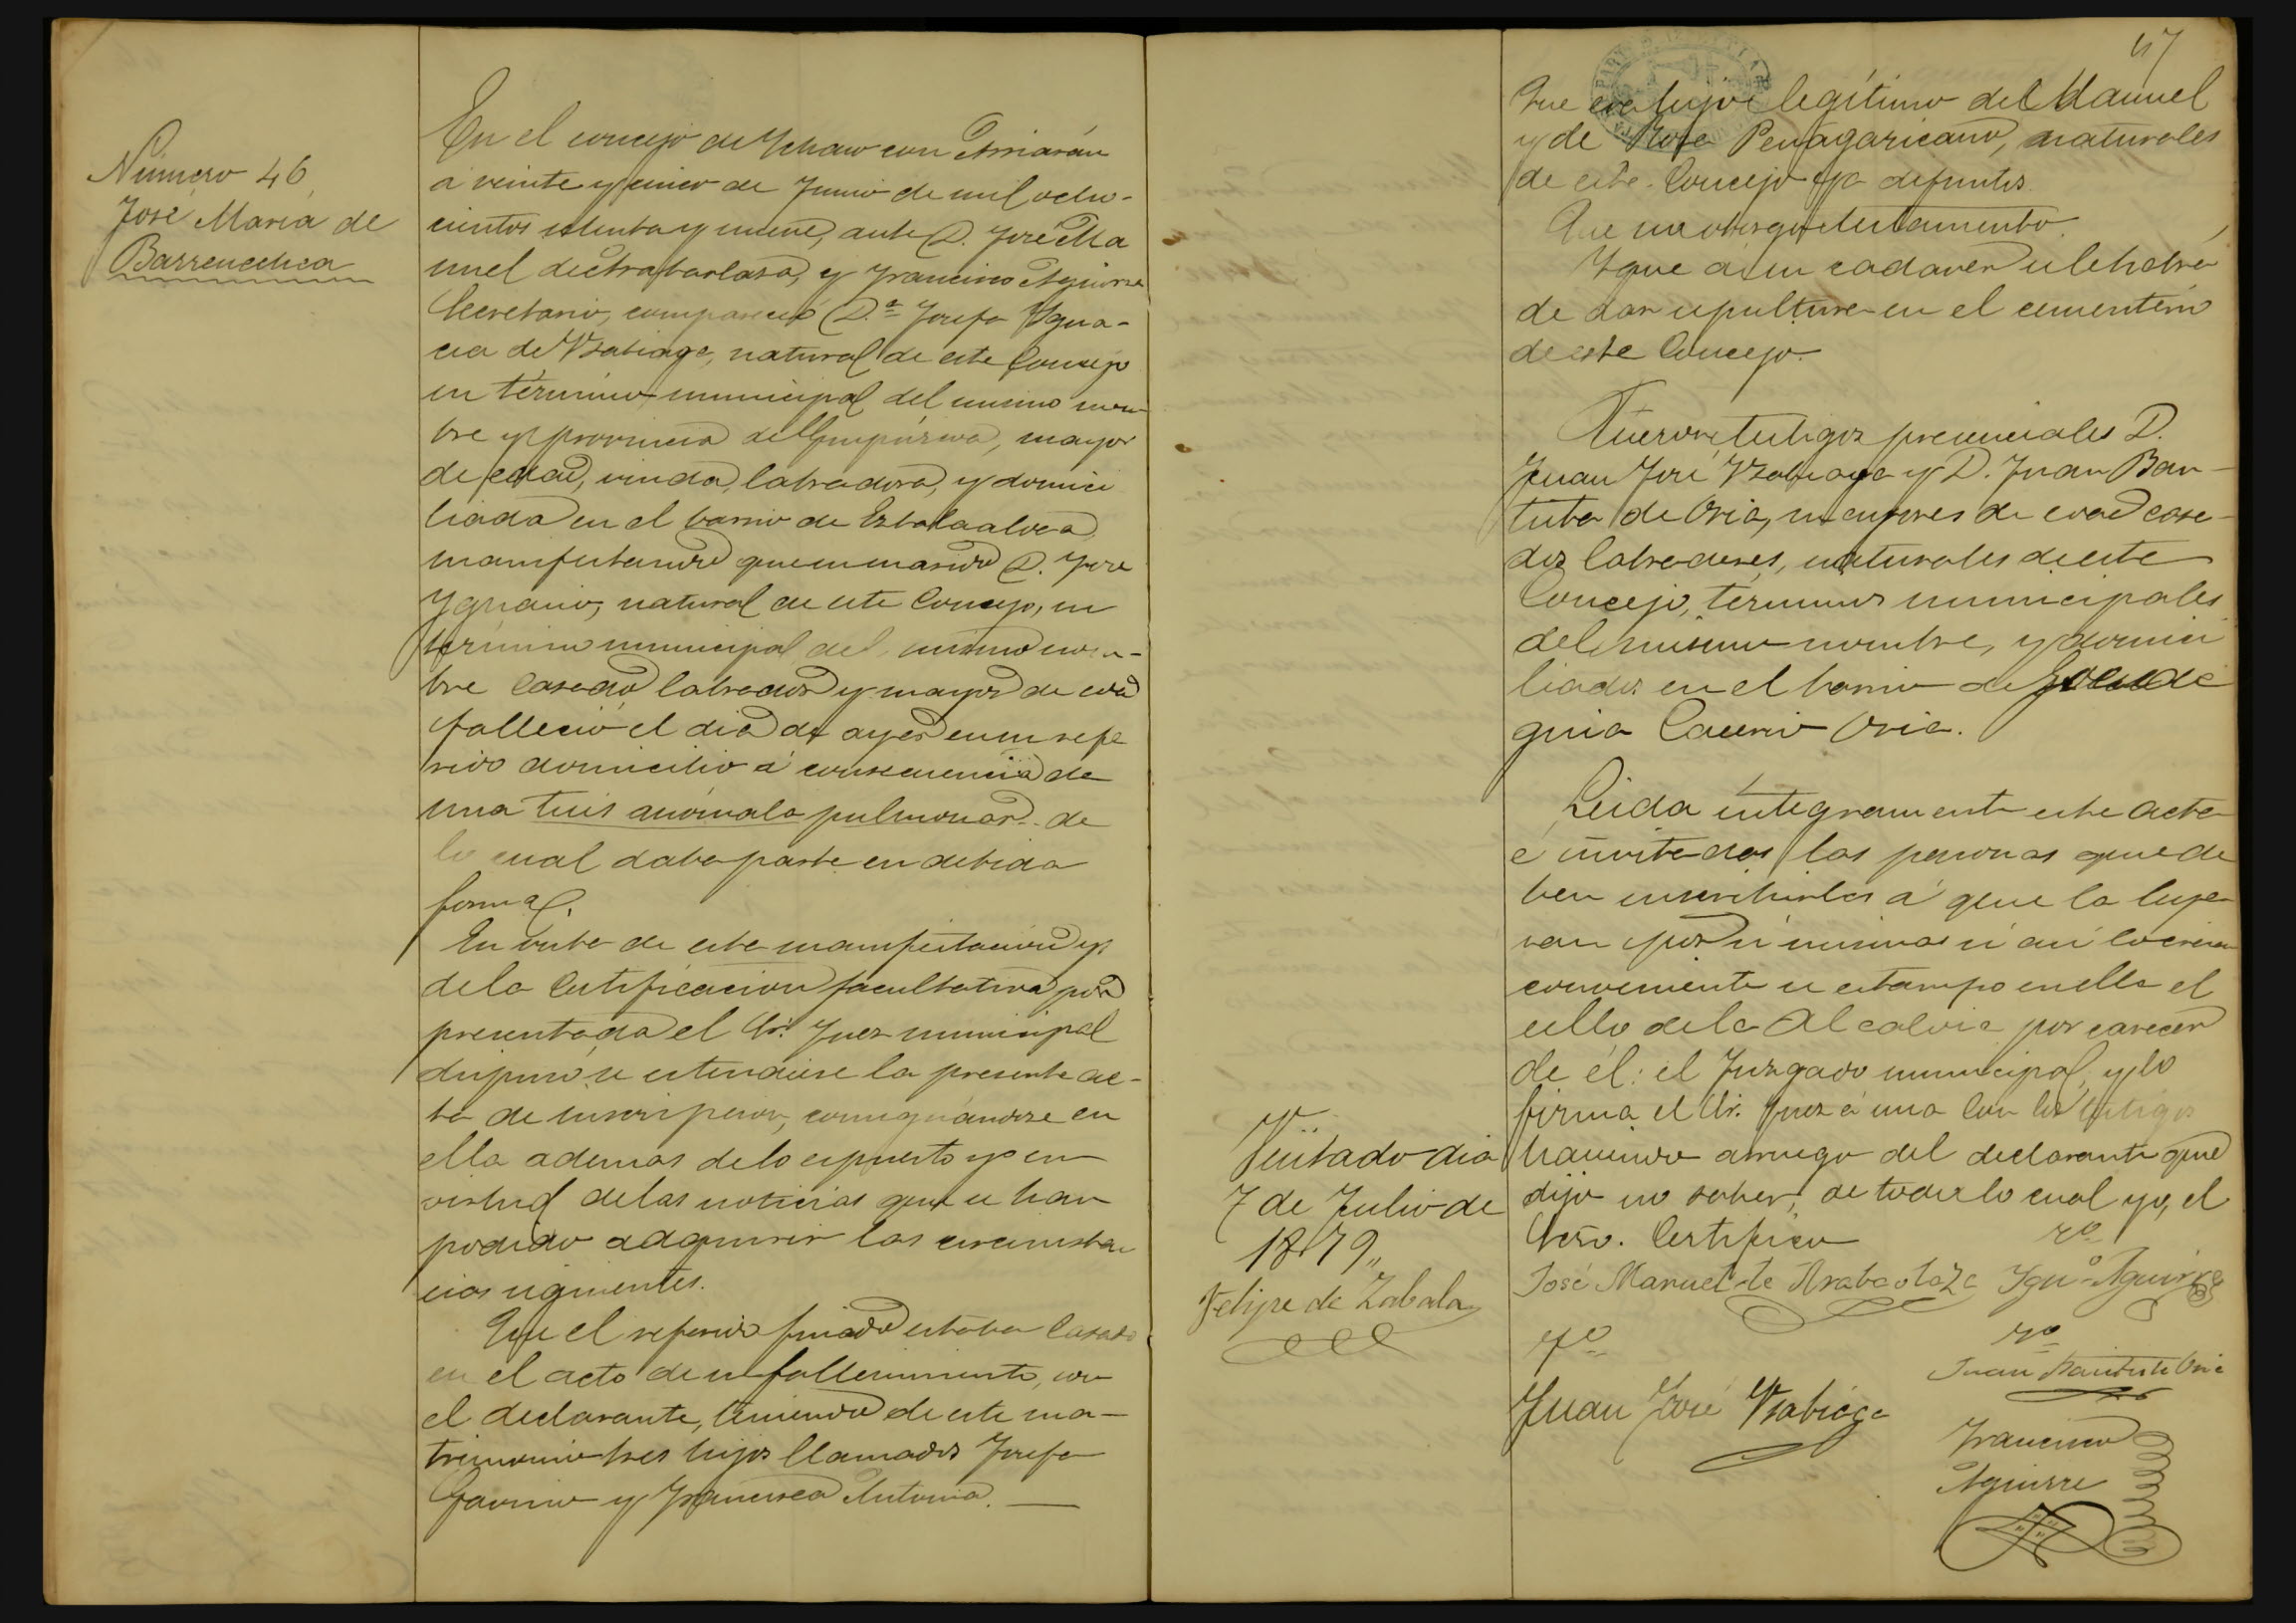 Número 46
José María de
Barrenechea
En el concejo de Ychaso con Arriarán
á veinte y cinco de Junio de mil ocho-
cientos setenta y nueve, ante D. José Ma
nuel de Arabaolaza, y Francisco Aguirre
Secretario, compareció D.ª Josefa Ygna-
cia de Usabiaga, natural de este Concejo
en término municipal del mismo nom-
bre y provincia de Guipúzcoa, mayor
de edad, viuda, labradora, y domici
liada en el barrio de
manifestando que su marido D. José
Ygnacio, natural de este Concejo, en
término municipal del mismo nom-
bre Casado, labrador y mayor de edad
falleció el dia de ayer en su refe
rido domicilio á consecuencia de
una tisis anómala pulmonar. de
lo cual daba parte en debida
forma.
En vista de esta manifestacion y
de la Certificacion facultativa
presentada el Sr. Juez municipal
dispuso se estendiese la presente ac-
ta de inscripcion, consignándose en
ella ademas de lo espuesto y en
virtud de las noticias que se han
podido adquirir las circunstan
cias siguientes.
Que el referido finado estaba Casado
en el acto de su fallecimiento, con
el declarante, teniendo de este ma-
trimonio tres hijos llamados Josefa
y Francisca Antonia.
47
Que era hijo legítimo del Manuel
y de Rosa Penagaricano, naturales
de este Concejo ya difuntos.
Que no otorgó testamento.
Y que á su cadaver se le habrá
de dar sepultura en el cementerio
de este Concejo.
Fueron testigos presenciales D.
Juan José Usabiaga y D. Juan Bau-
tista de Oria, mayores de edad casa-
dos labradores, naturales de este
Concejo, términos municipales
del mismo nombre, y domici
liados en el barrio de
Oria.
Leida integramente este acta
é invitadas las personas que de
ben suscribirlas á que la leye
ran por sí mismas si así lo creian
conveniente se estampo en ella el
sello de la Alcaldia por carecer
de él: el Juzgado municipal, y lo
firma el Sr. Juez á una con los testigos
haciendo a ruego del declarante que
dijo no saber, de todo lo cual yo, el
Srio. Certifico
José Manuel de Arabaolaza Ygn.º Aguirre
Juan Bautista Oria
Juan José Usabiaga
Francisco
Aguirre
Visitado dia
7 de Julio de
1879,,
Felipe de Zabala